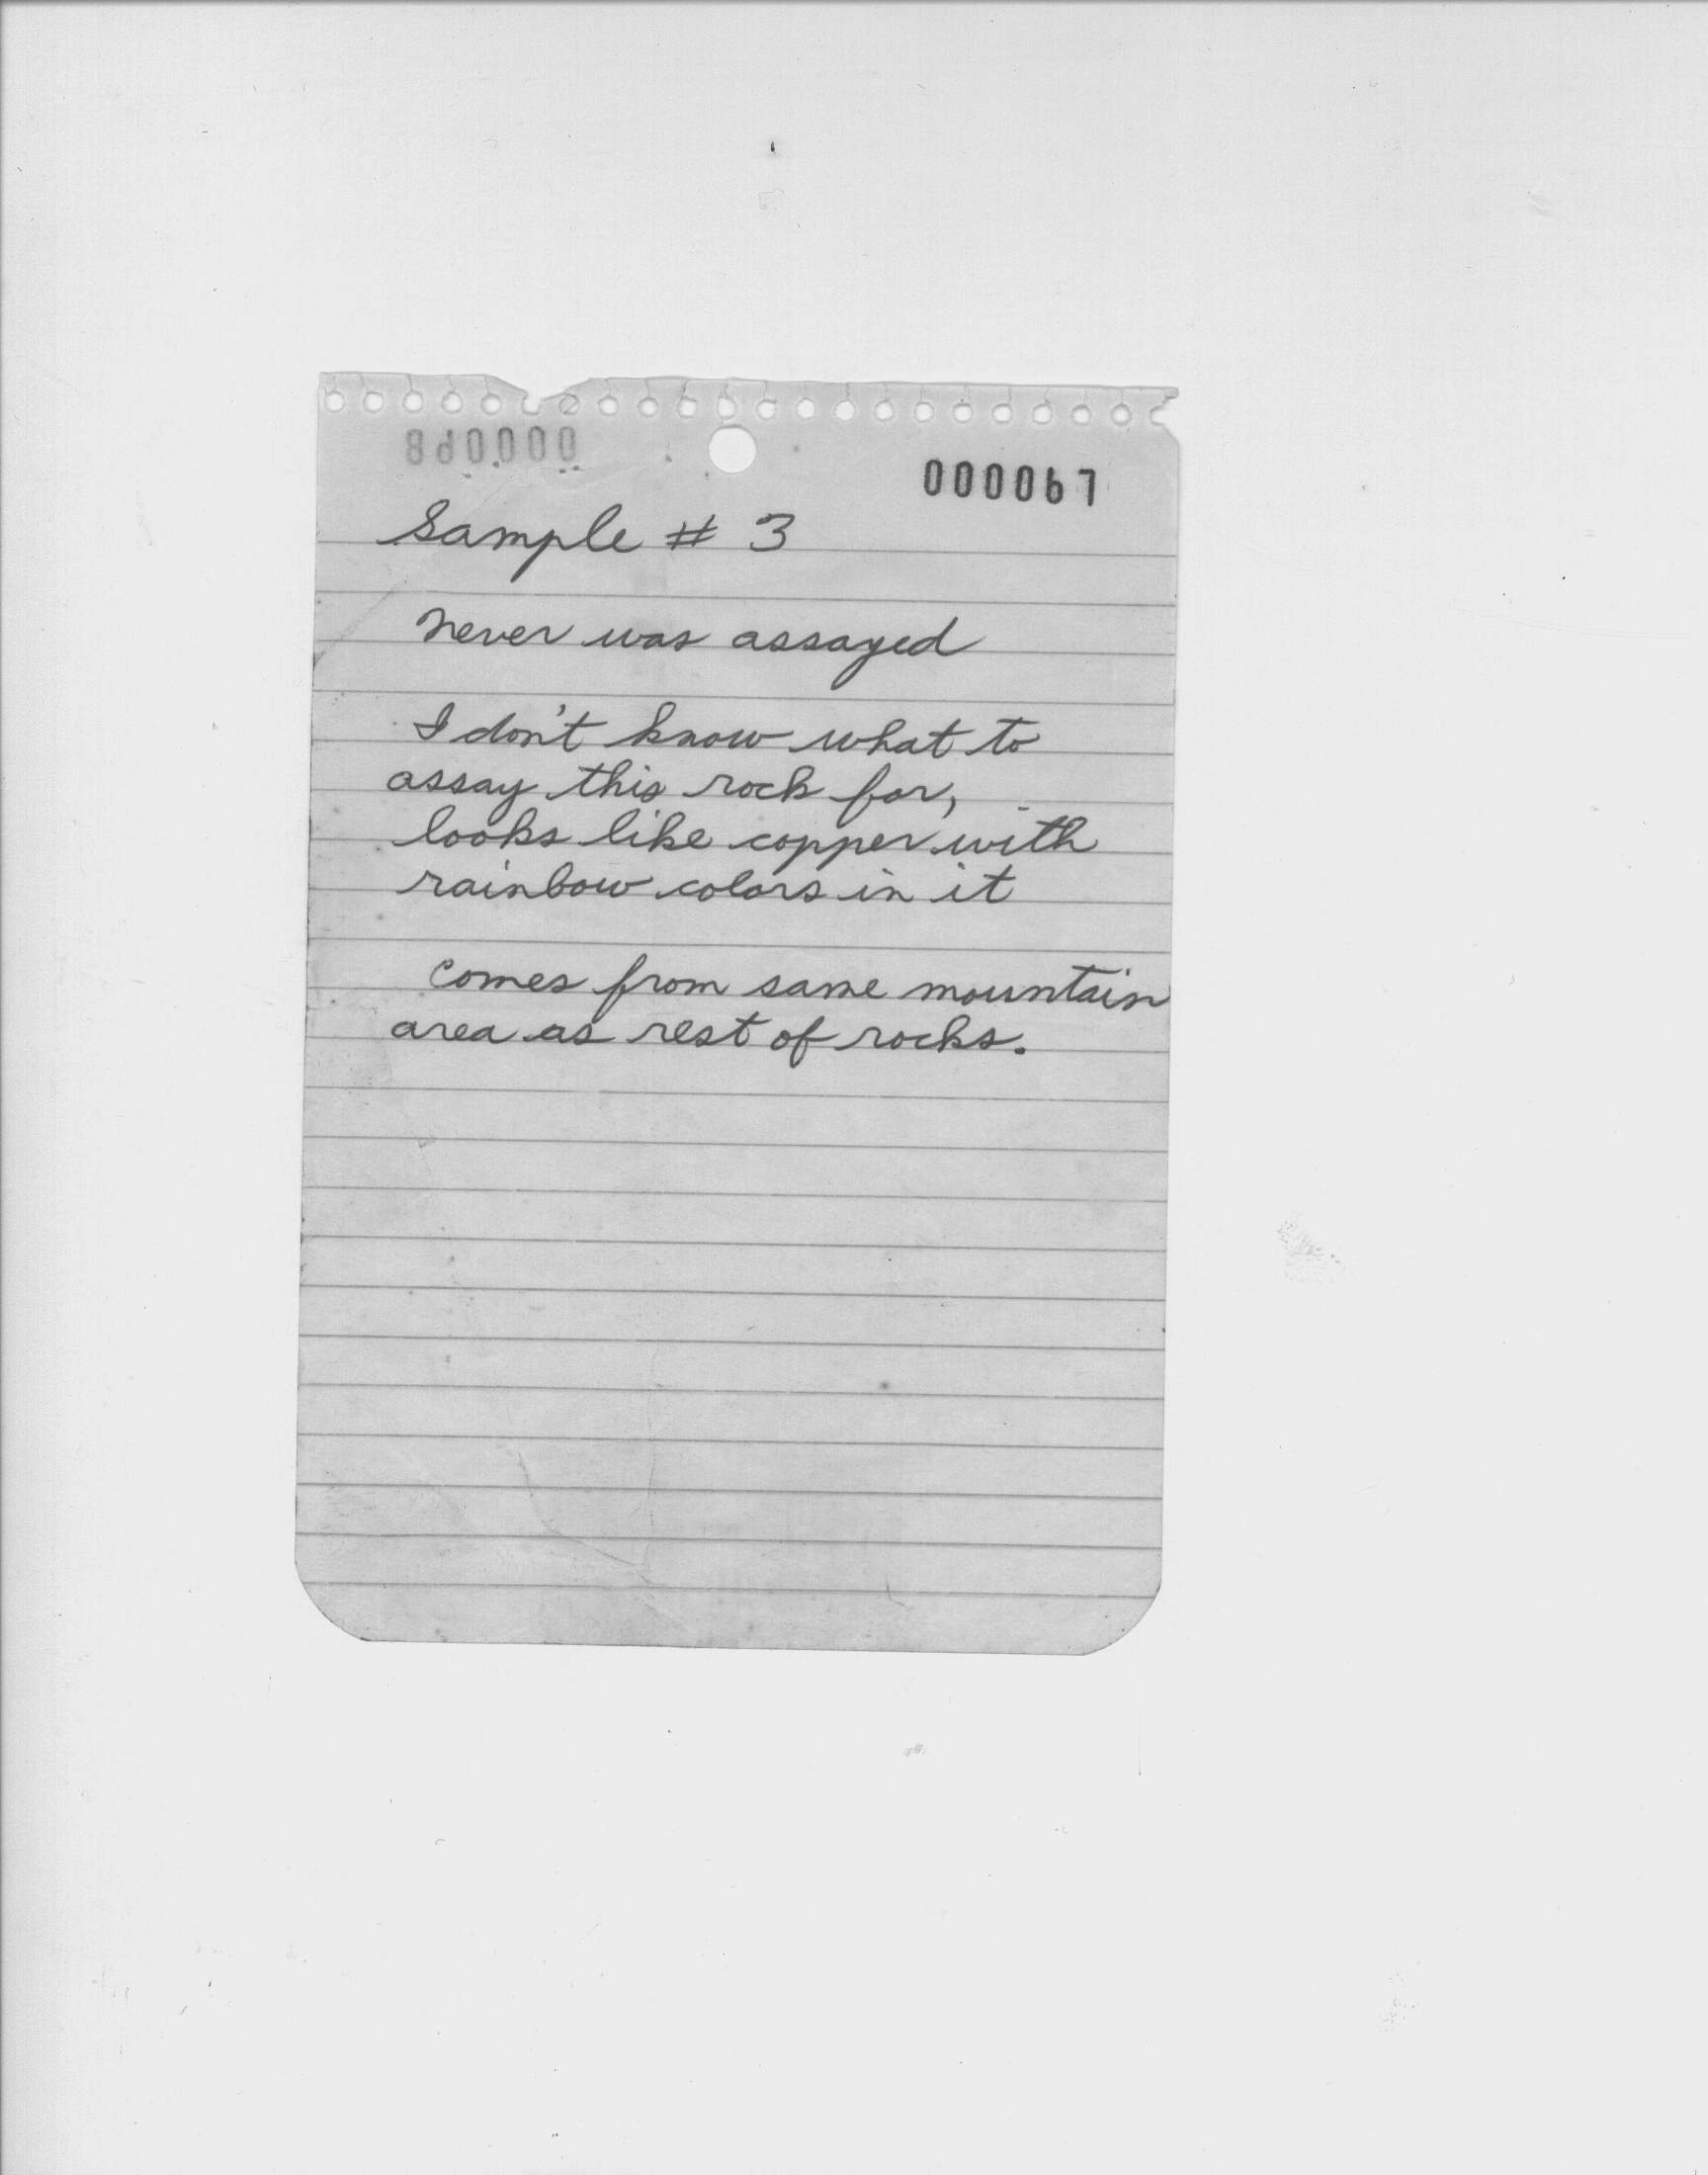 000067
Sample # 3
never was assayed
I don't know what to
assay this rock for,
looks like copper with
rainbow colors in it
comes from same mountain
area as rest of rocks.